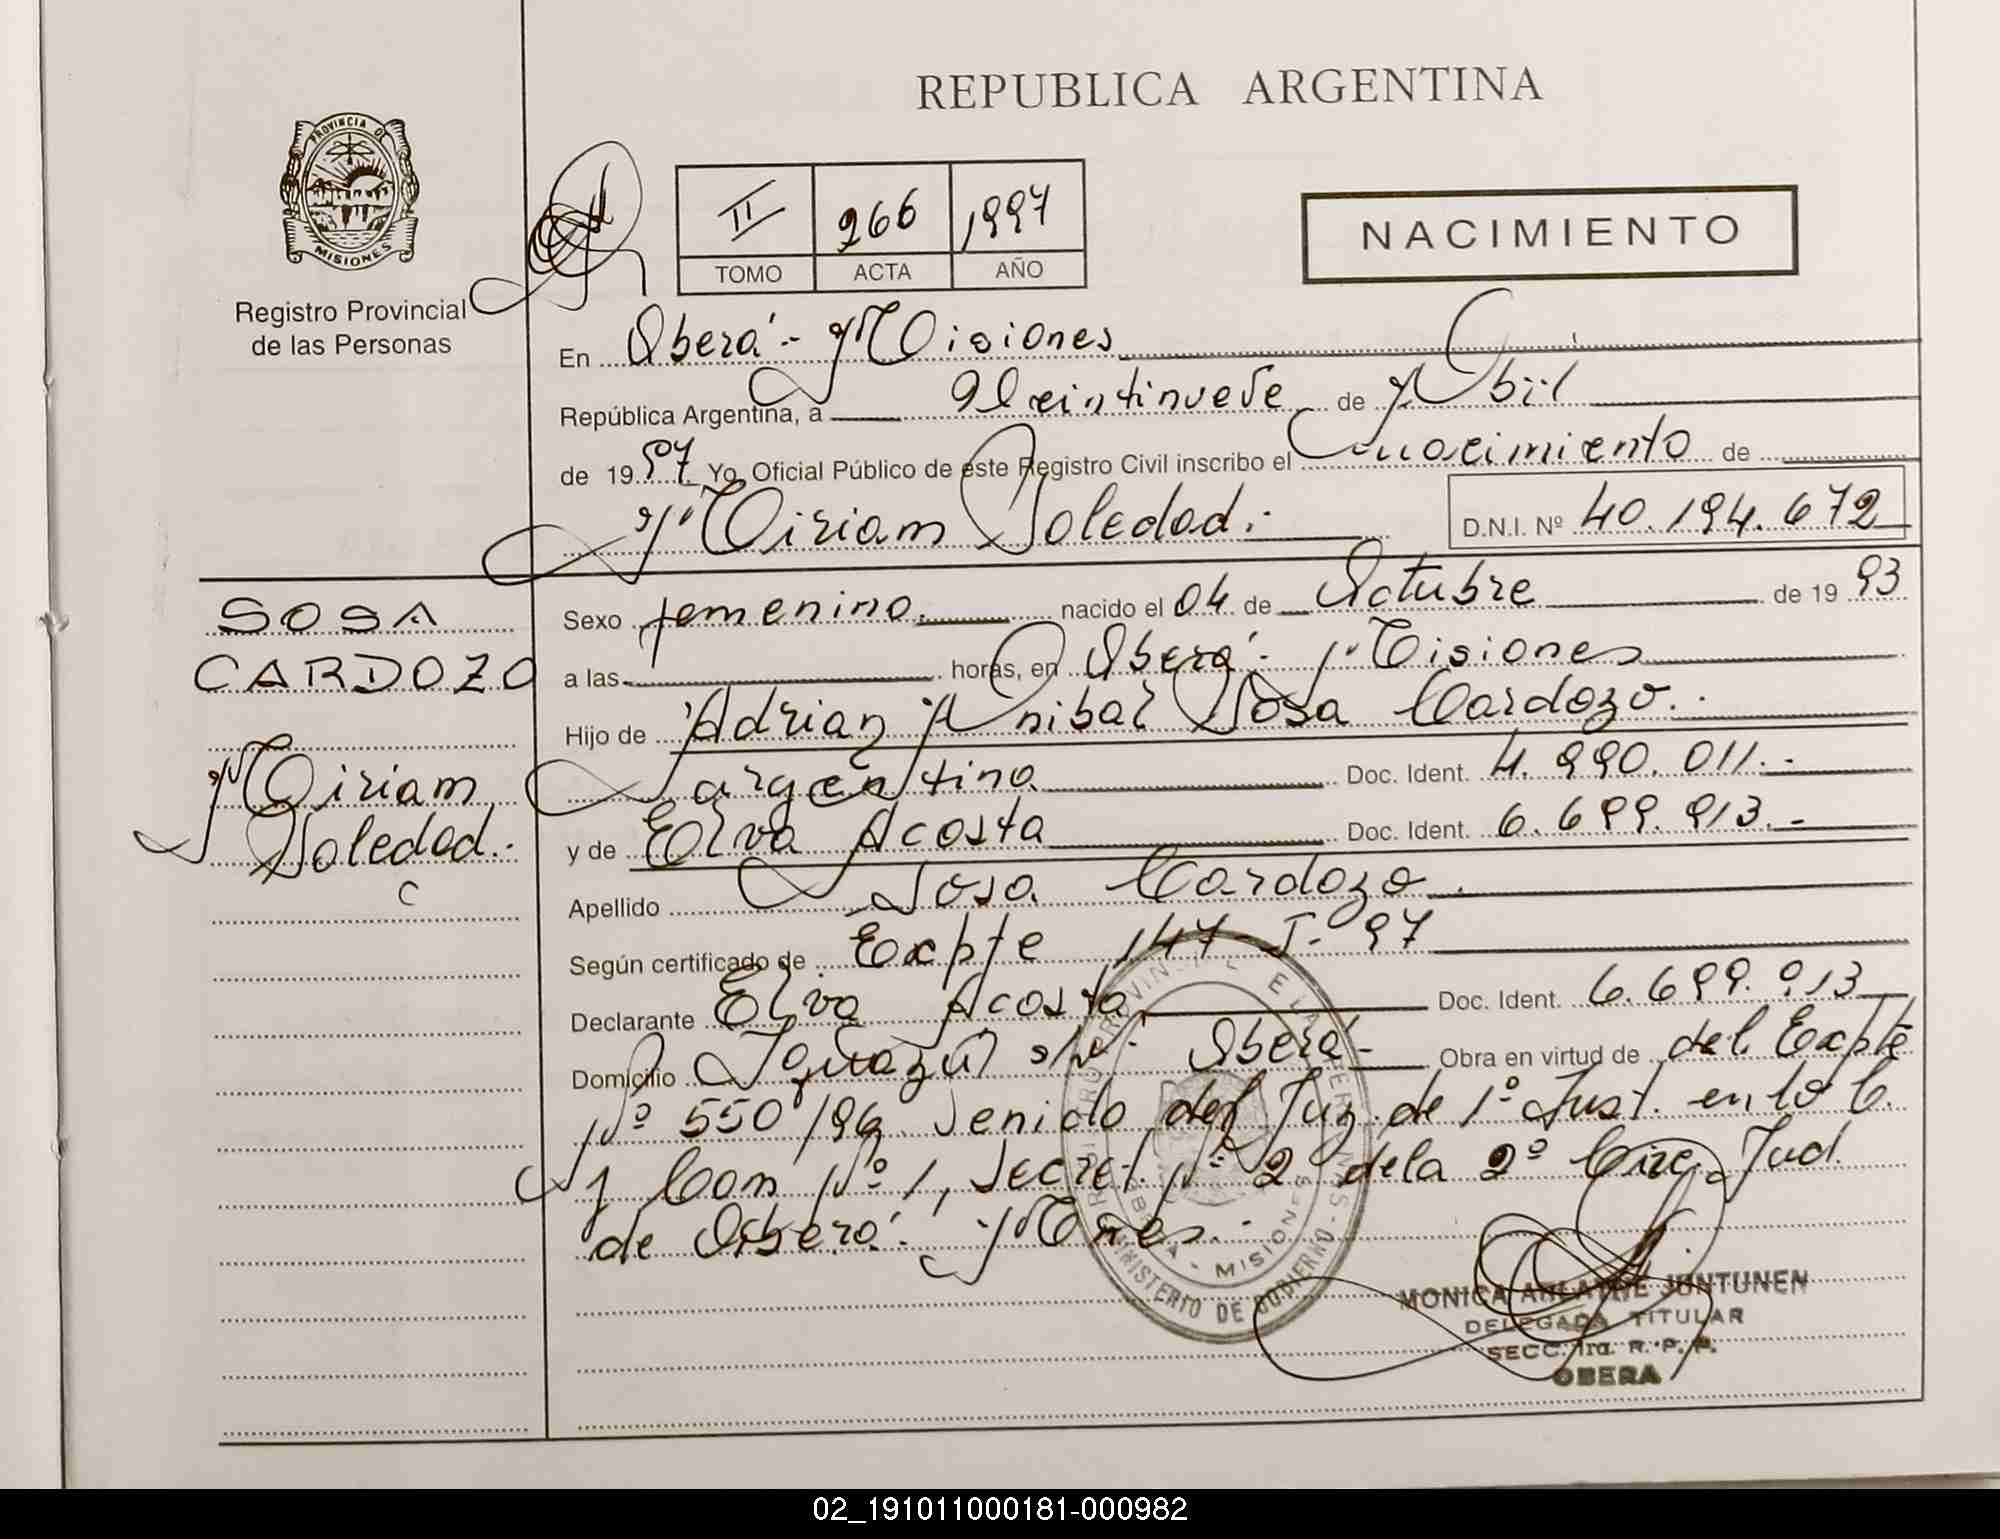 REPUBLICA ARGENTINA
PROVINCIA DE
MISIONES
Registro Provincial
de las Personas
II 266 1997
TOMO ACTA AÑO
NACIMIENTO
En Oberá - Misiones
República Argentina, a Veintinueve de Abril
de 1997 Yo, Oficial Público de este Registro Civil inscribo el nacimiento de
Miriam Soledad.-
D.N.I. Nº 40.194.672
SOSA
CARDOZO
Miriam
Soledad.-
Sexo femenino. nacido el 04 de Octubre de 1993
a las horas, en Oberá - Misiones
Hijo de Adrian Anibal Sosa Cardozo.-
argentino Doc. Ident. 4.990.011.-
y de Elva Acosta Doc. Ident. 6.699.913.-
Apellido Sosa Cardozo.
Según certificado de Expte 147-I-97
Declarante Elva Acosta Doc. Ident. 6.699.913
Domicilio Iguazú s/nº Oberá - Obra en virtud de del Expte
Nº 550/96 Venido del Juz. de 1º Inst. en lo C.
y Com Nº 1, Secret. Nº 2 de la 2º Circ. Jud.
de Oberá. Mnes.-
OBERA - MISIONES
MINISTERIO DE GOBIERNO
MONICA JUNTUNEN
DELEGADA TITULAR
SECC. 1ra. R. P. P.
OBERA
02_191011000181-000982